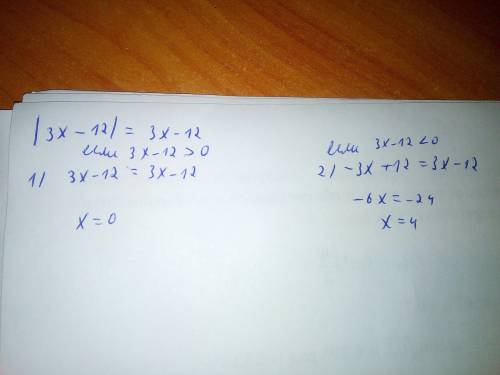 |3x - 12| = 3x - 12
если 3x - 12 > 0
1) 3x - 12 = 3x - 12
x = 0
если 3x - 12 < 0
2) -3x + 12 = 3x - 12
-6x = -24
x = 4